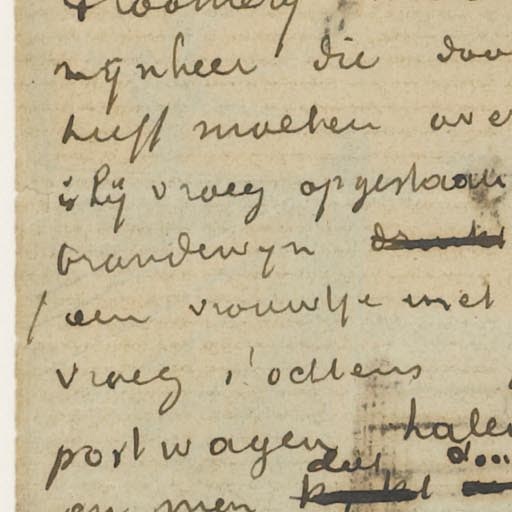 mynheer die doo
heeft moeten ove
is hy vroeg opgestaan
brandewyn
een vrouwtje met
vroeg s'ochtens
postwagen halen
en men dat d...